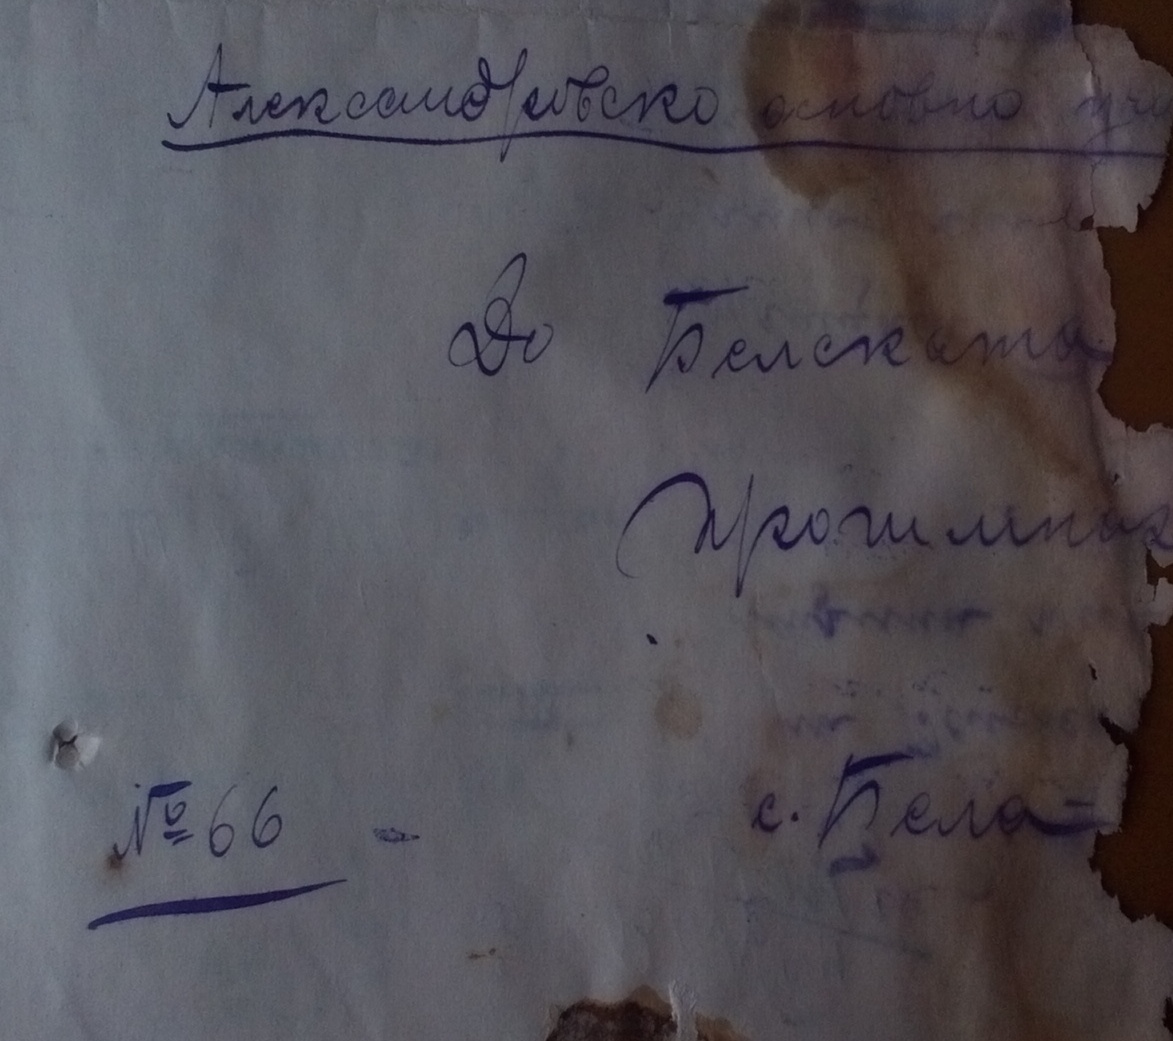 Александровско основно учи
До Белската
Прогимназ
№ 66 - с. Бела=